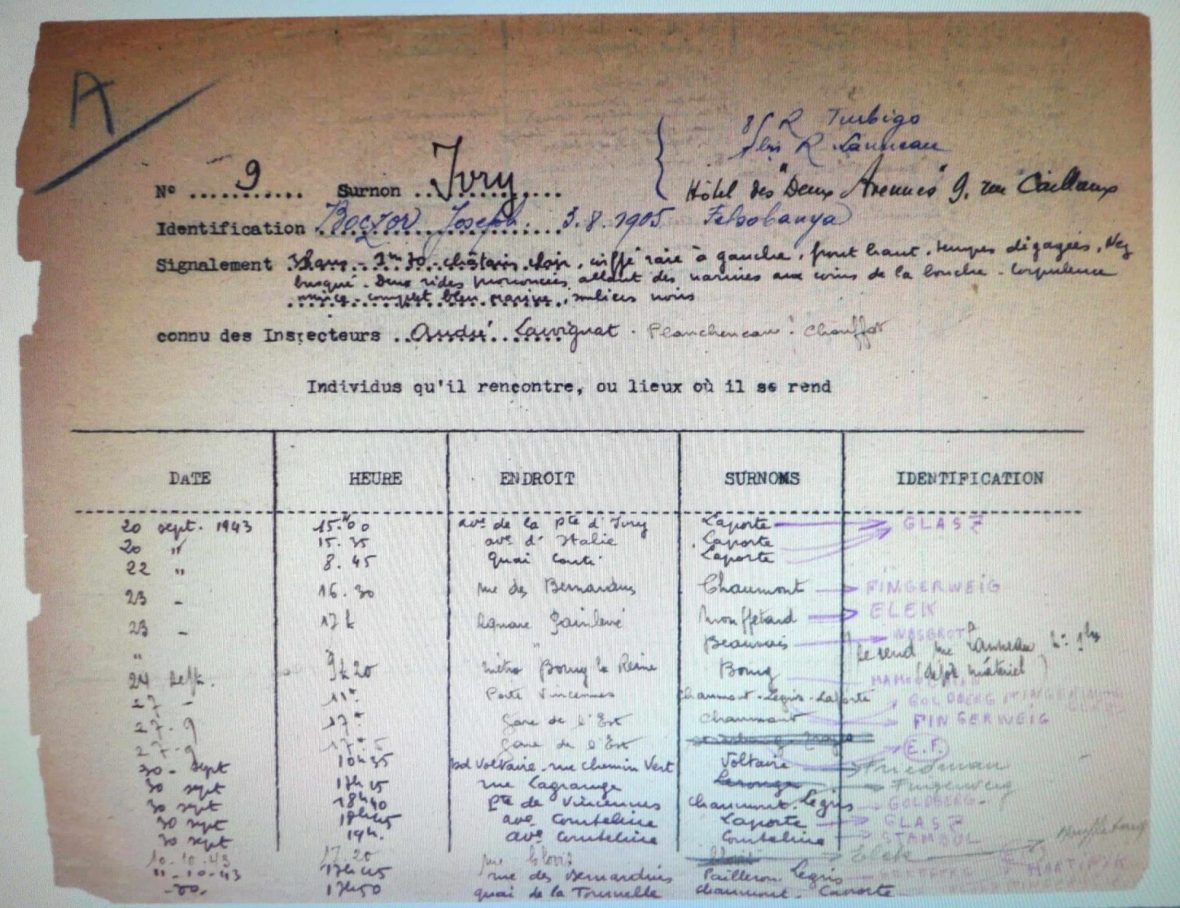 A
R Turbigo
R Lanneau
N° ...9... Surnon ..Ivry...
Hôtel des "Deux Avenues" 9, rue Caillaux
Identification Boczor Joseph. 3.8.1905 Felsobanya
Signalement 38 ans - 1m70 - châtain clair, coiffé raie à gauche, front haut, tempes dégagées, Nez
busqué - Deux rides prononcées allant des narines aux coins de la bouche - Corpulence
mince - complet bleu marine, souliers noirs
connu des Inspecteurs ..André. Lavignat. Plancheneau. Chauffar
Individus qu'il rencontre, ou lieux où il se rend
DATE HEURE ENDROIT SURNOMS IDENTIFICATION
20 sept. 1943 15.00 ave de la Pte d'Ivry Laporte GLASZ
20 " 15.35 ave d'Italie Laporte
22 " 8.45 Quai Conti Laporte
23 - 16.30 rue des Bernardins Chaumont FINGERWEIG
23 - 17h Square Painlevé Mouffetard ELEK
" Beauvais WASBROT Se rend rue Lanneau
24 Sept. 9h20 métro "Bourg la Reine Bourg (dépôt matériel)
27 - 11h Porte Vincennes Chaumont - Legris - Laporte GOLDBERG FINGERWEIG
27.9 17h Gare de l'Est Chaumont FINGERWEIG
27.9 17h5 Gare de l'Est E.F.
30 - Sept 10h35 bd Voltaire - rue chemin Vert Voltaire Friedman
30 sept 17h45 rue Lagrange Lerouge Fingerweig
30 sept 18h40 Pte de Vincennes Chaumont. Legris GOLDBERG
30 sept 18h45 ave Courteline Laporte GLASZ
30 sept 19h. ave Courteline Courteline STAMBUL
10-10-43 17-20 rue Clovis Elek Mouffetard
11-10-43 17h45 rue des Bernardins Pailleron Legris MARTINIUK
-do- 17h50 quai de la Tournelle Chaumont - Laporte